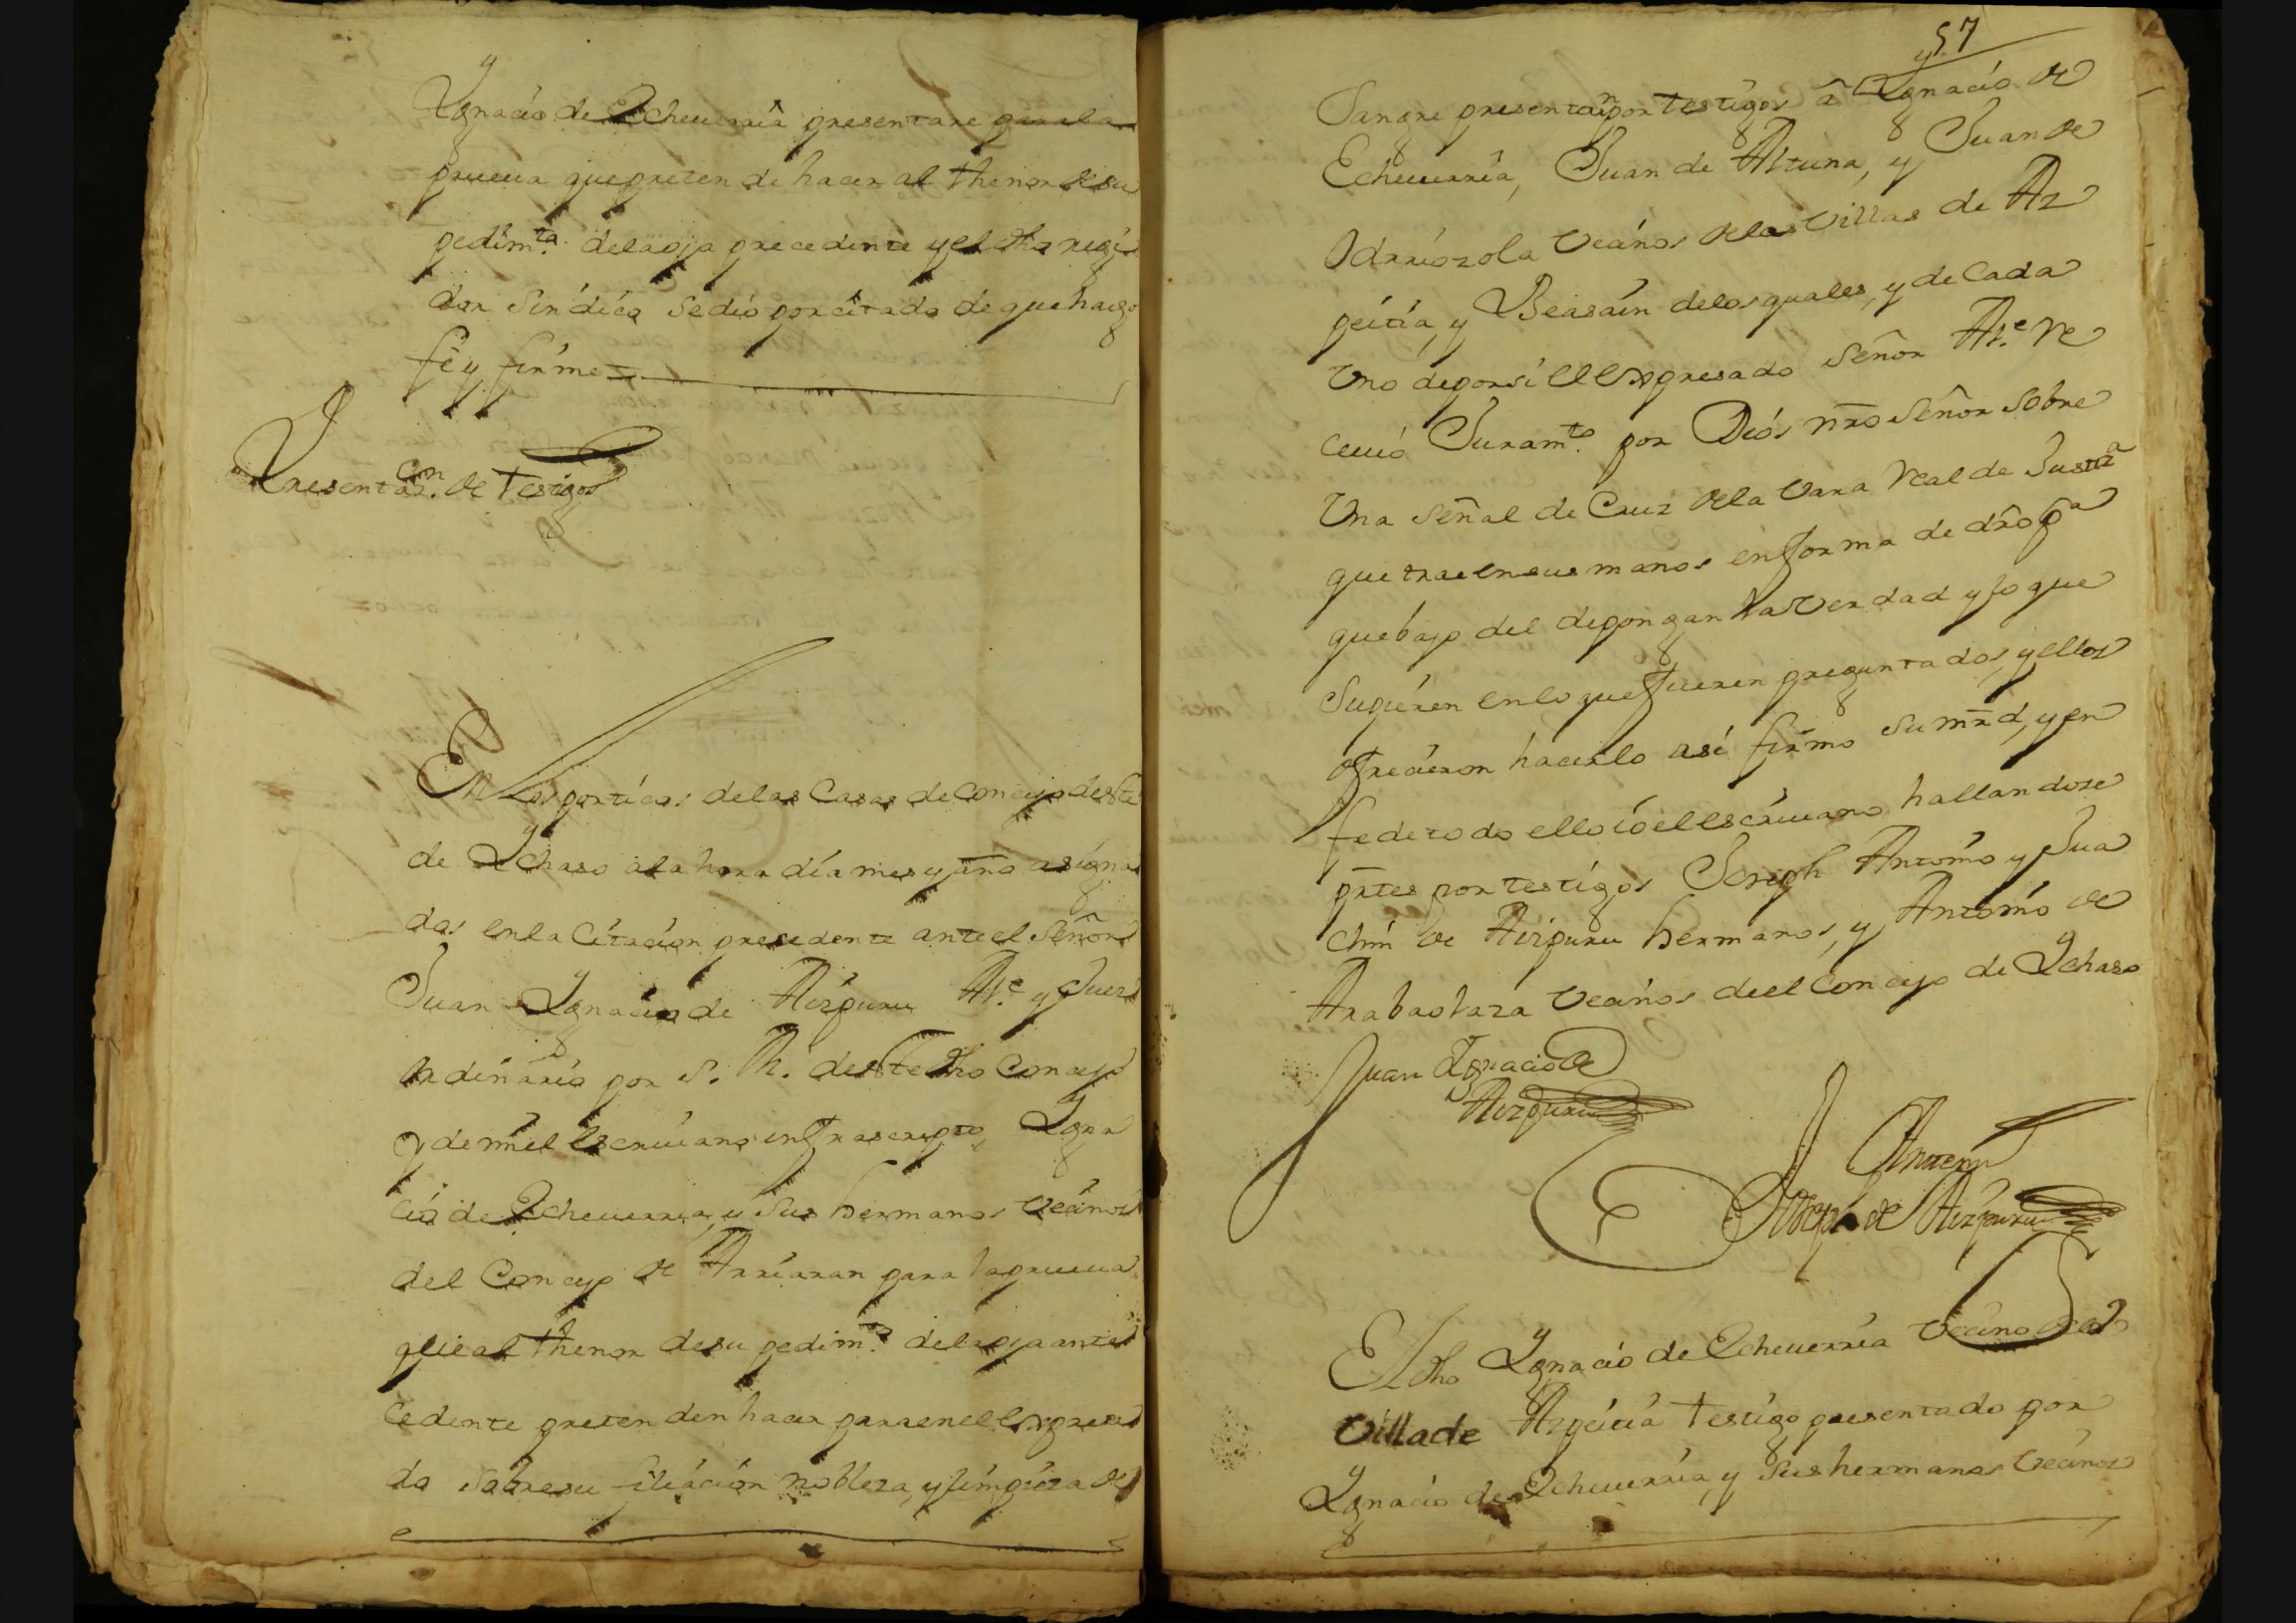 Ygnacio de Echeuerria presentare para la
prueua que pretende hacer al thenor de su
pedimto. dela oja precedente y el dho regi
dor sindico se dio por citado de que hago
fe y firme
Presentacon. de testigos
En los porticos delas Casas de Concejo deste
de Ychaso ala hora dia mes y año asigna
dos en la Citacion presedente ante el Señor
Juan Ygnacio de Aizpuru Ale. y Juez
ordinario por S. M. deste dho Concejo
y de mi el Escriuano infraescripto, Ygna
cio de Echeuerria, y sus hermanos vecinos
del Concejo de Arriaran para la prueua
que al thenor de su pedimto. dela oja ante
cedente pretenden hacer para en el expresa
do sobre su filiacion nobleza, y limpieza de
57
Sangre presentaron por testigos â Ygnacio de
Echeuerria, Juan de Altuna, y Juan de
Odriozola vecinos delas Villas de Az
peitia, y Beasain delos quales, y de Cada
Vno de por si el expresado Señor Ale. Re
ceuió Juramto. por Dios nro Señor sobre
Vna señal de Cruz dela Vara Real de Justia
que trae en sus manos en forma de dro pa
que bajo del depongan la verdad y lo que
Supieren en lo que fueren preguntados, y ellos
ofrecieron hacerlo asi firmo su mrd, y en
fe de todo ello io el escriuano hallandose
prtes por testigos Joseph Antonio y Jua
chin de Aizpuru hermanos, y Antonio de
Arabaolaza vecinos deel Concejo de Ychaso
Juan Ygnacio de
Aizpuru
Antemi
Joseph de Aizpuru
El dho Ygnacio de Echeuerria vecino dela
Villa de Azpeitia testigo presentado por
Ygnacio de Echeuerria, y sus hermanos vecinos